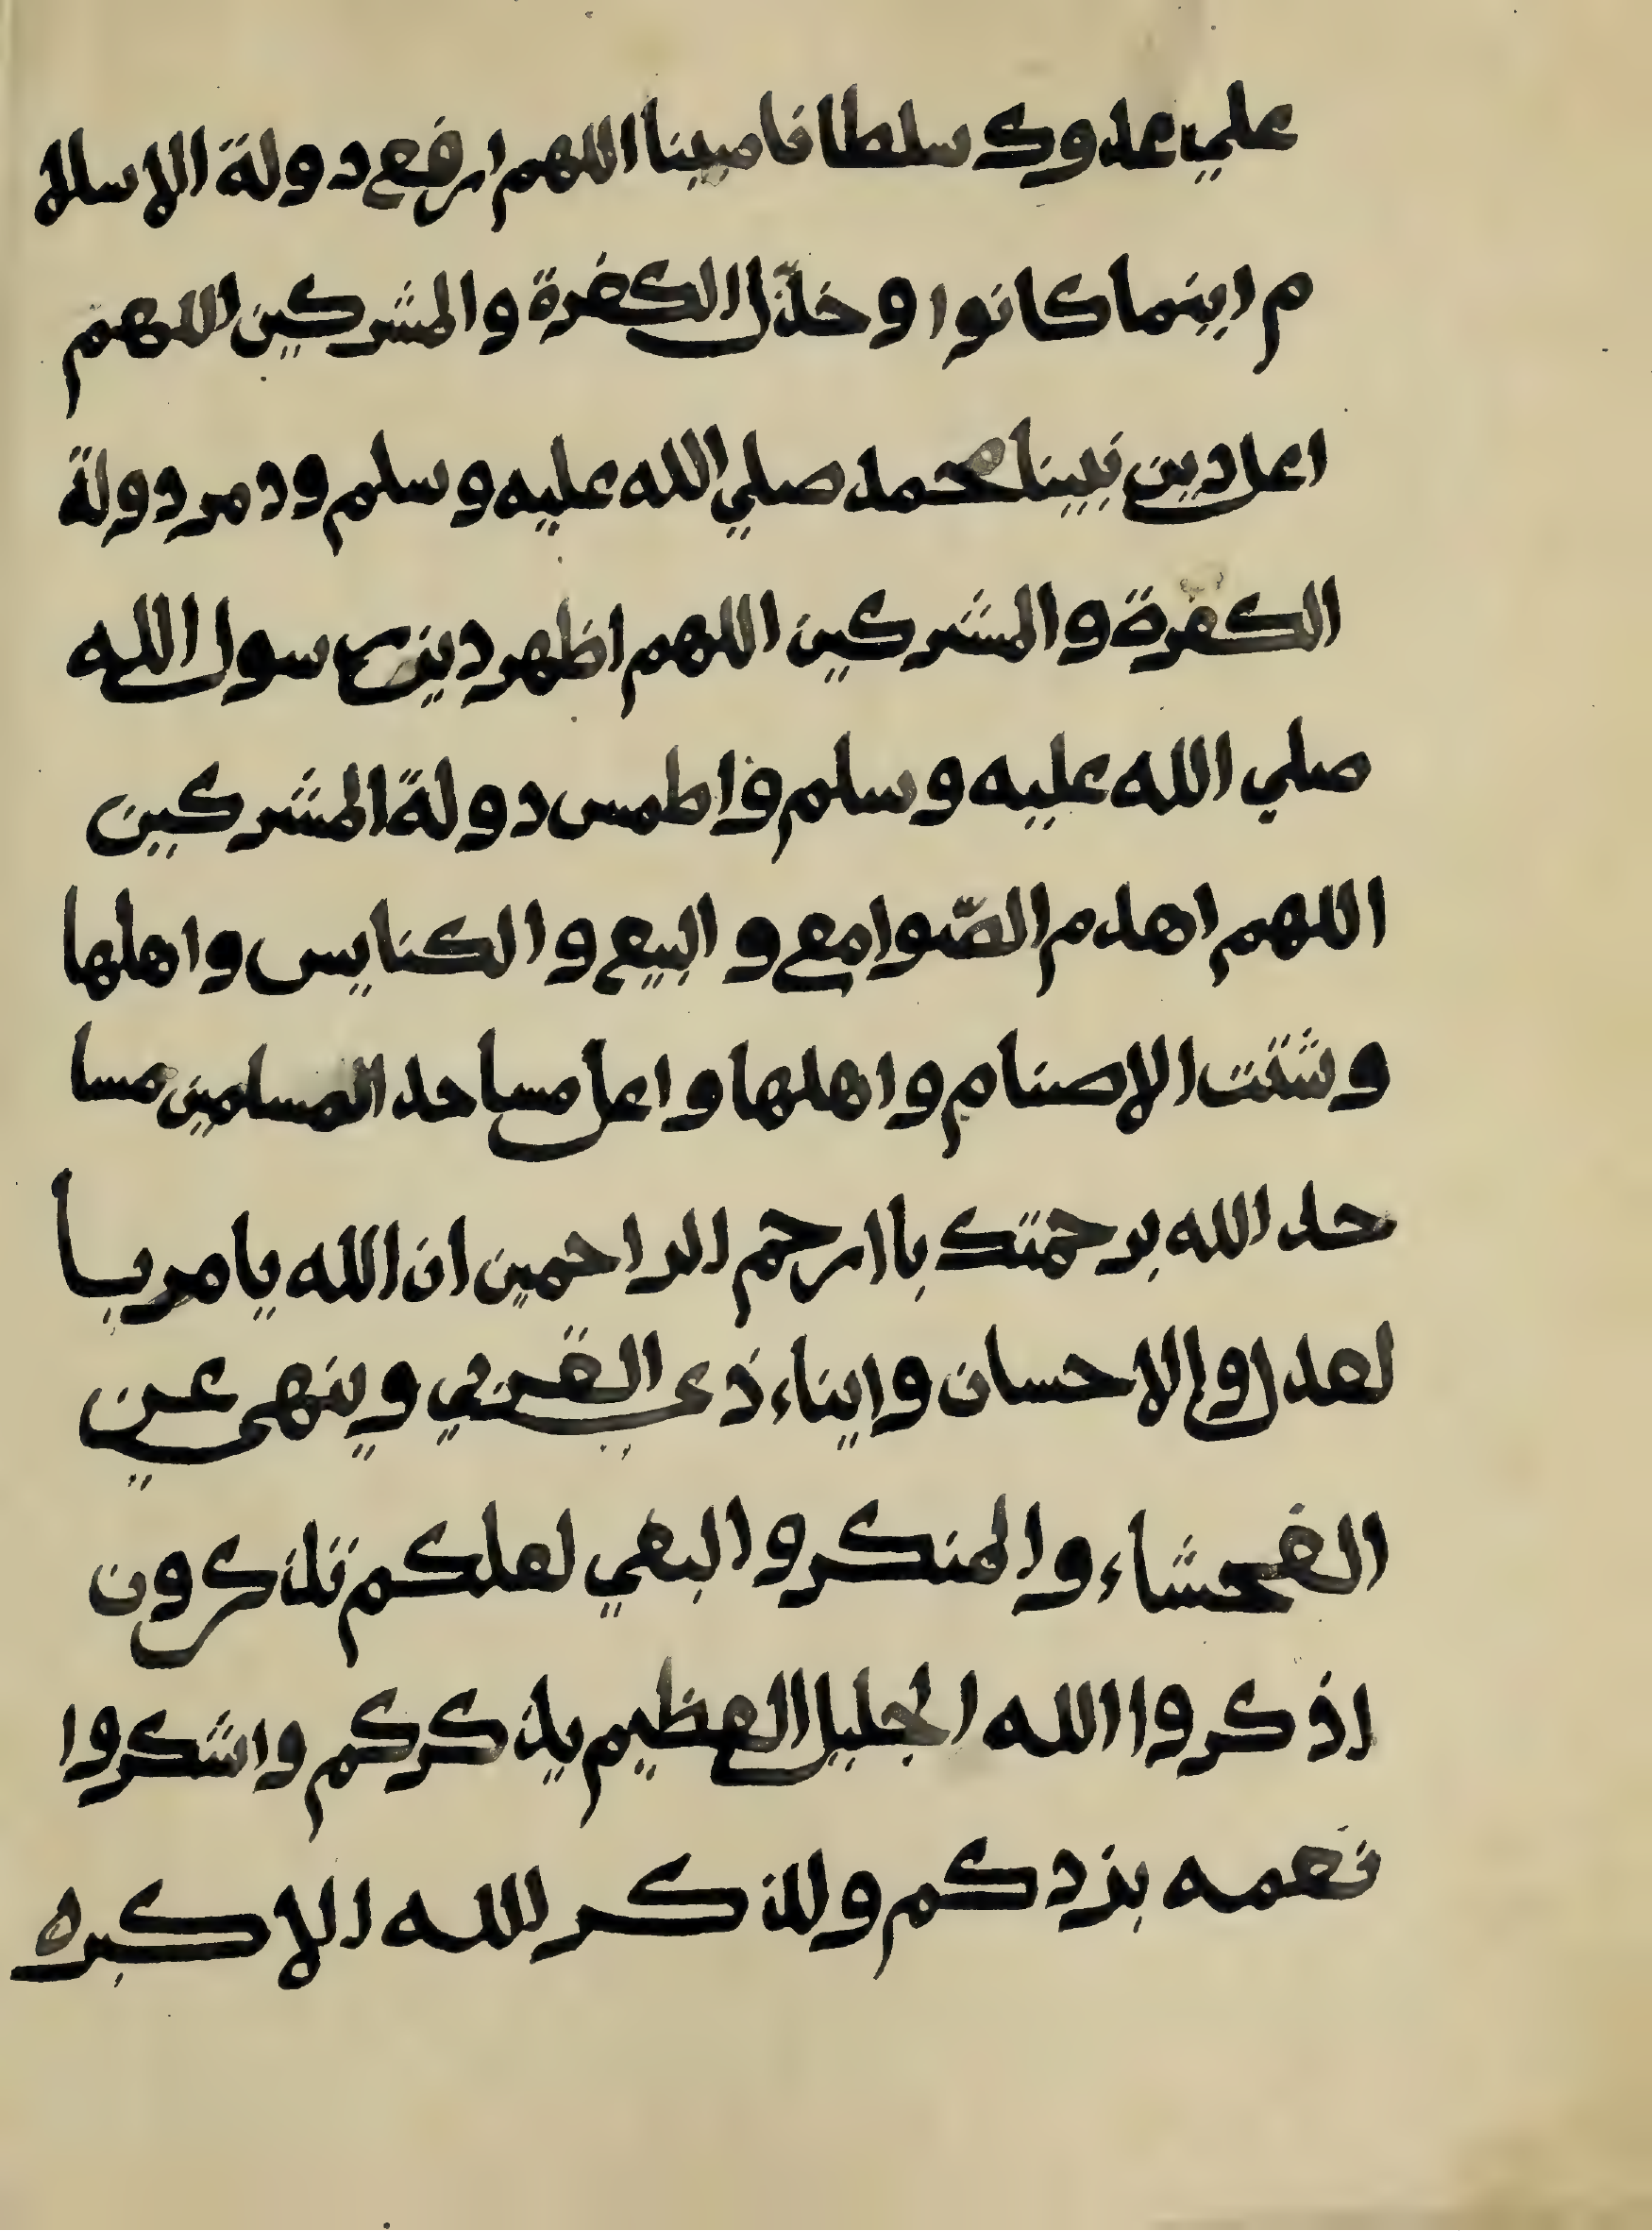 علي عدوك سلطانا مبينا اللهم ارفع دولة الاسلا
م اينما كانوا وخذّل الكفرة والمشركين اللهم
اعل دين نبينا محمد صلي الله عليه وسلم ودمر دولة
الكفرة والمشركين اللهم اظهر دين رسول الله
صلي الله عليه وسلم واطمس دولة المشركين
اللهم اهدم الصّوامع والبيع والكنايس واهلها
وشتت الاصنام واهلها واعل مساجد المسلمين مسا
جد الله برحمتك يا ارحم الراحمين ان الله يامر با
لعدل والاحسان وايتاء ذى القربي وينهى عن
الفحشاء والمنكر والبغي لعلكم تذكرون
اذكروا الله الجليل العظيم يذكركم واشكروا
نعمه يزدكم ولذكر لله الاكبره